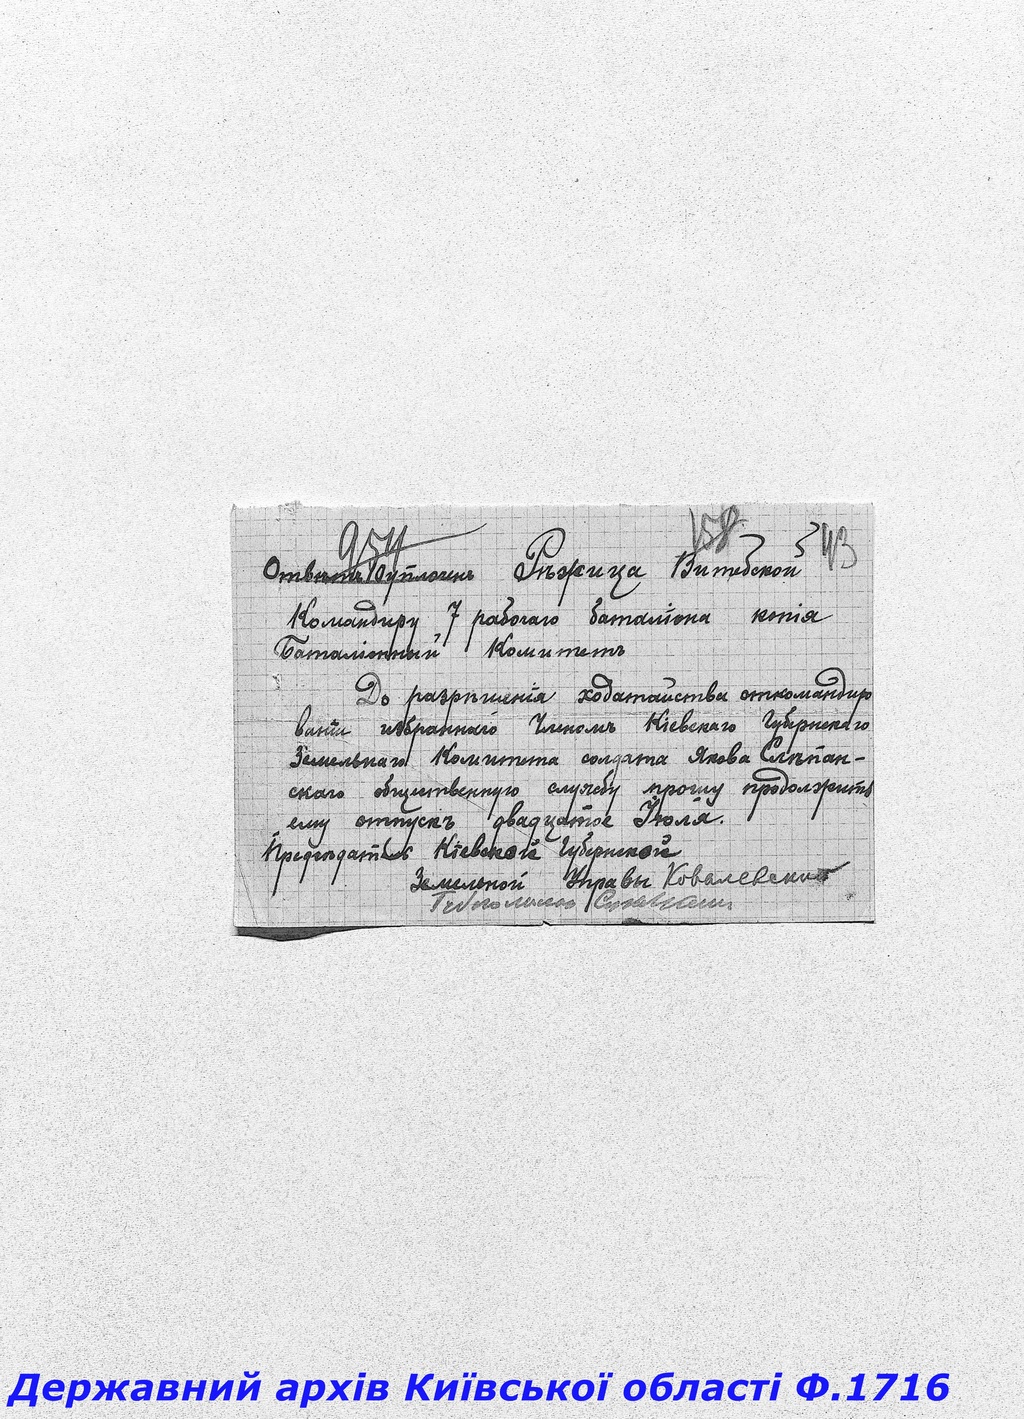 954
158
43
Отвѣтъ Оуплоченъ Рѣжица Витебской
Командиру 7 рабочаго баталіона копія
Баталіонный Комитетъ
До разрѣшенія ходатайства откомандиро
вати избраннаго Членомъ Кіевскаго Губернскаго
Земельнаго Комитета солдата Якова Слѣпан-
скаго общественную службу прошу продолжить
ему отпускъ двадцатое Июля.
Предсѣдатель Кіевской Губернской
Земельной Управы Ковалевский
Державний архів Київської області Ф.1716